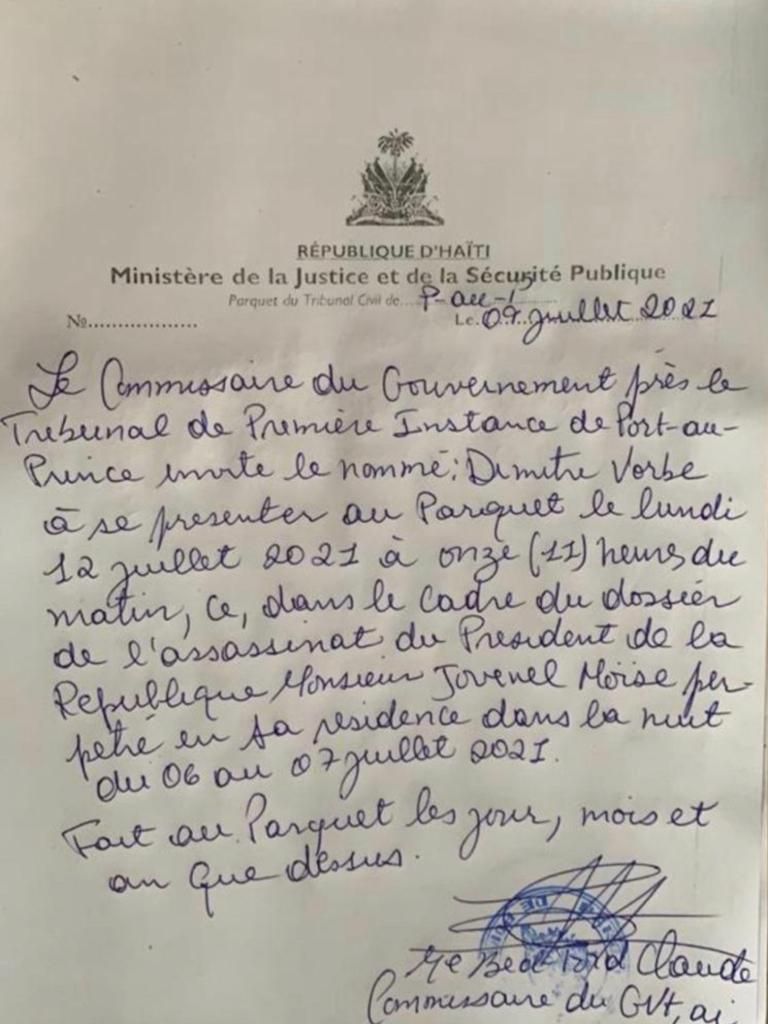 RÉPUBLIQUE D'HAÏTI
Ministère de la Justice et de la Sécurité Publique
Parquet du Tribunal Civil de... P-au-P
No.................. Le. 09 juillet 2021
Le Commissaire du Gouvernement près le
Tribunal de Première Instance de Port-au-
Prince invite le nommé: Dimitri Vorbe
à se presenter au Parquet le lundi
12 juillet 2021 à onze (11) heures du
matin, ce, dans le cadre du dossier
de l'assassinat du President de la
Republique Monsieur Jovenel Moïse per-
pétré en sa residence dans la nuit
du 06 au 07 juillet 2021.
Fait au Parquet les jour, mois et
an que dessus.
Me Bed Ford Claude
Commissaire du Gvt, ai